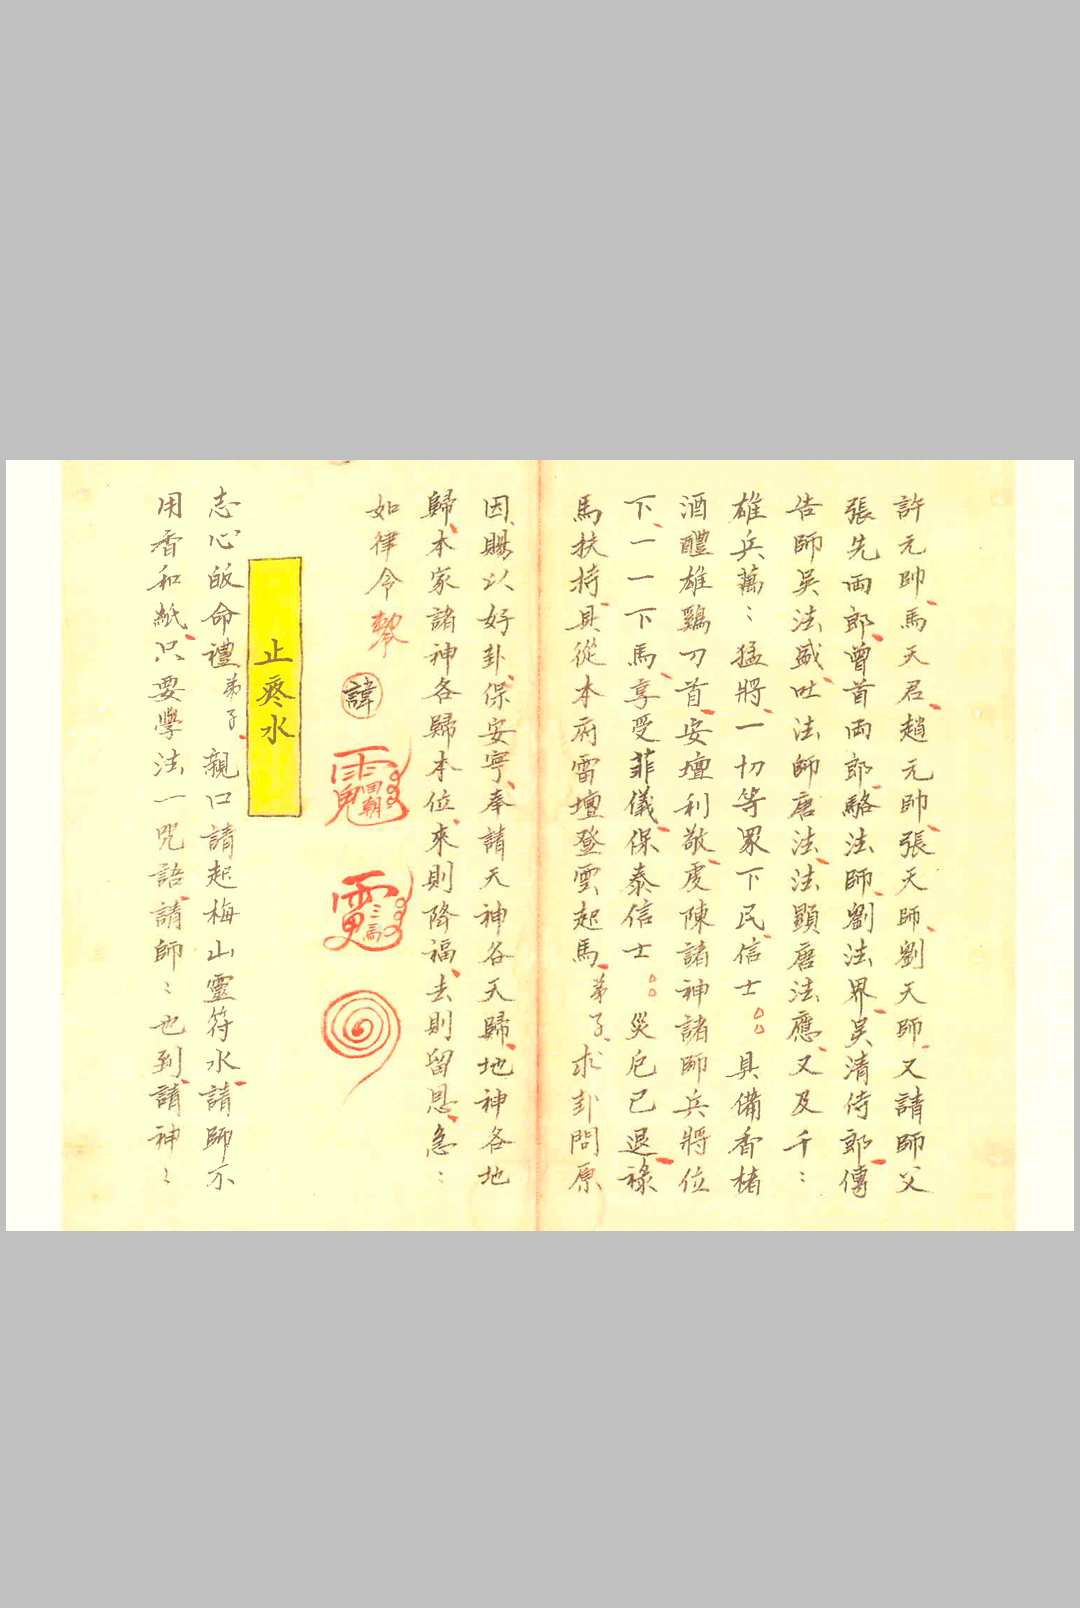 許元帥、馬天君、趙元帥、張天師、劉天師、又請師父
張先両郎、曾首両郎、駱法師、劉法界、吳清侍郎、傳
告師吳法盛、吐法師唐法、法顯唐法應、又及千〻
雄兵萬〻猛將、一切等眾下民、信士 具備香楮
酒醴雄鷄刀首、安壇利敬、虔陳諸神諸師兵將位
下、一一下馬、享受菲儀、保泰信士 災厄已退、祿
馬扶持、具從本府雷壇登雲起馬、弟子、求卦問原
因、賜以好卦、保安寧、奉請天神各天歸、地神各地
歸、本家諸神各歸本位、來則降福、去則留恩、急〻
如律令
諱
止疼水
志心皈命禮弟子、親口請起梅山靈符水、請師不
用香和紙、只要學法一咒語、請師〻也到、請神〻